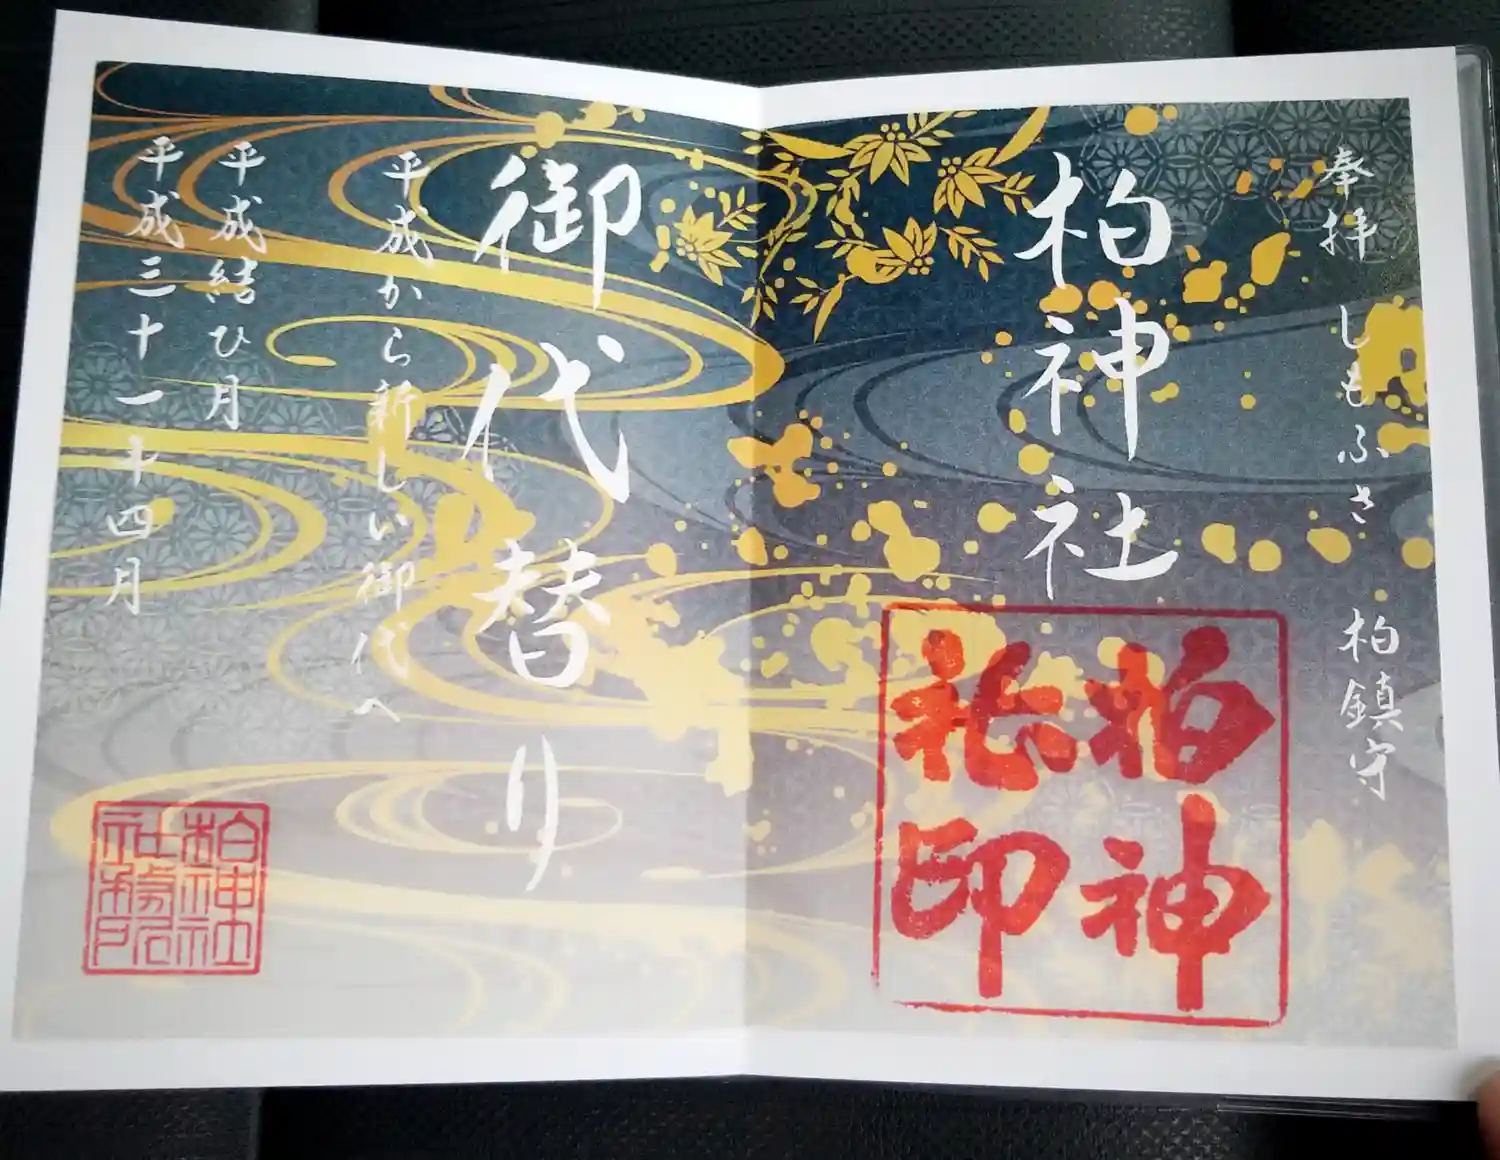 奉拝 しもふさ 柏鎮守
柏神社
柏神社印
御代替り
平成から新しい御代へ
平成結び月
平成三十一年四月
柏神社
社務所